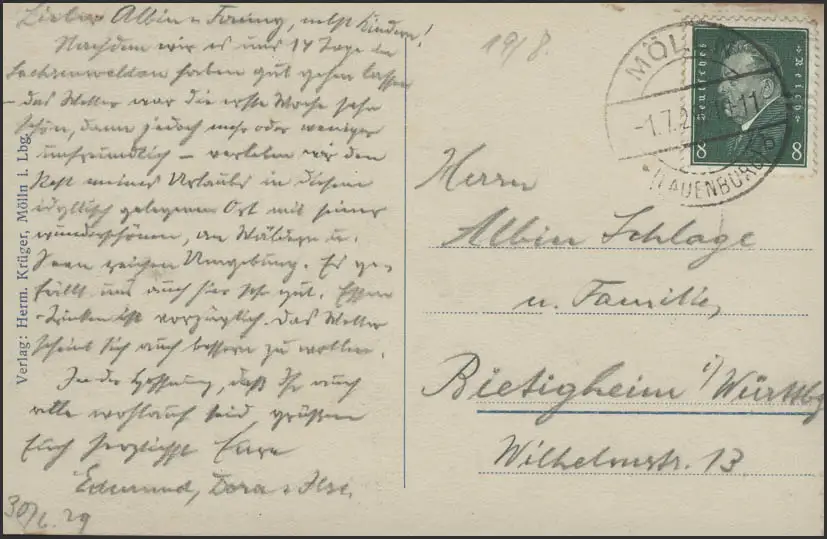 Lieber Albin u. Fanny, nebst Kindern!
Nachdem wir es uns 14 Tage im
Sachsenwalde haben gut gehen lassen
– das Wetter war die erste Woche sehr
schön, dann jedoch mehr oder weniger
unfreundlich – verleben wir den
Rest meines Urlaubs in diesem
idyllisch gelegenen Ort mit seiner
wunderschönen, an Wäldern u.
Seen reichen Umgebung. Es ge-
fällt uns auch hier sehr gut. Essen
Trinken ist vorzüglich. Das Wetter
scheint sich auch bessern zu wollen.
In der Hoffnung, daß Ihr auch
alle wohlauf seid, grüßen
Euch herzlichst Eure
Edmund, Dora u. Ilse.
30/6.29
Verlag: Herm. Krüger, Mölln i. Lbg.
19/8.
MÖLLN
-1.7.2 -11
(LAUENBURG)
Deutsches Reich
8 8
Herrn
Albin Schlage
u. Familie,
Bietigheim i/ Württbg
Wilhelmstr. 13